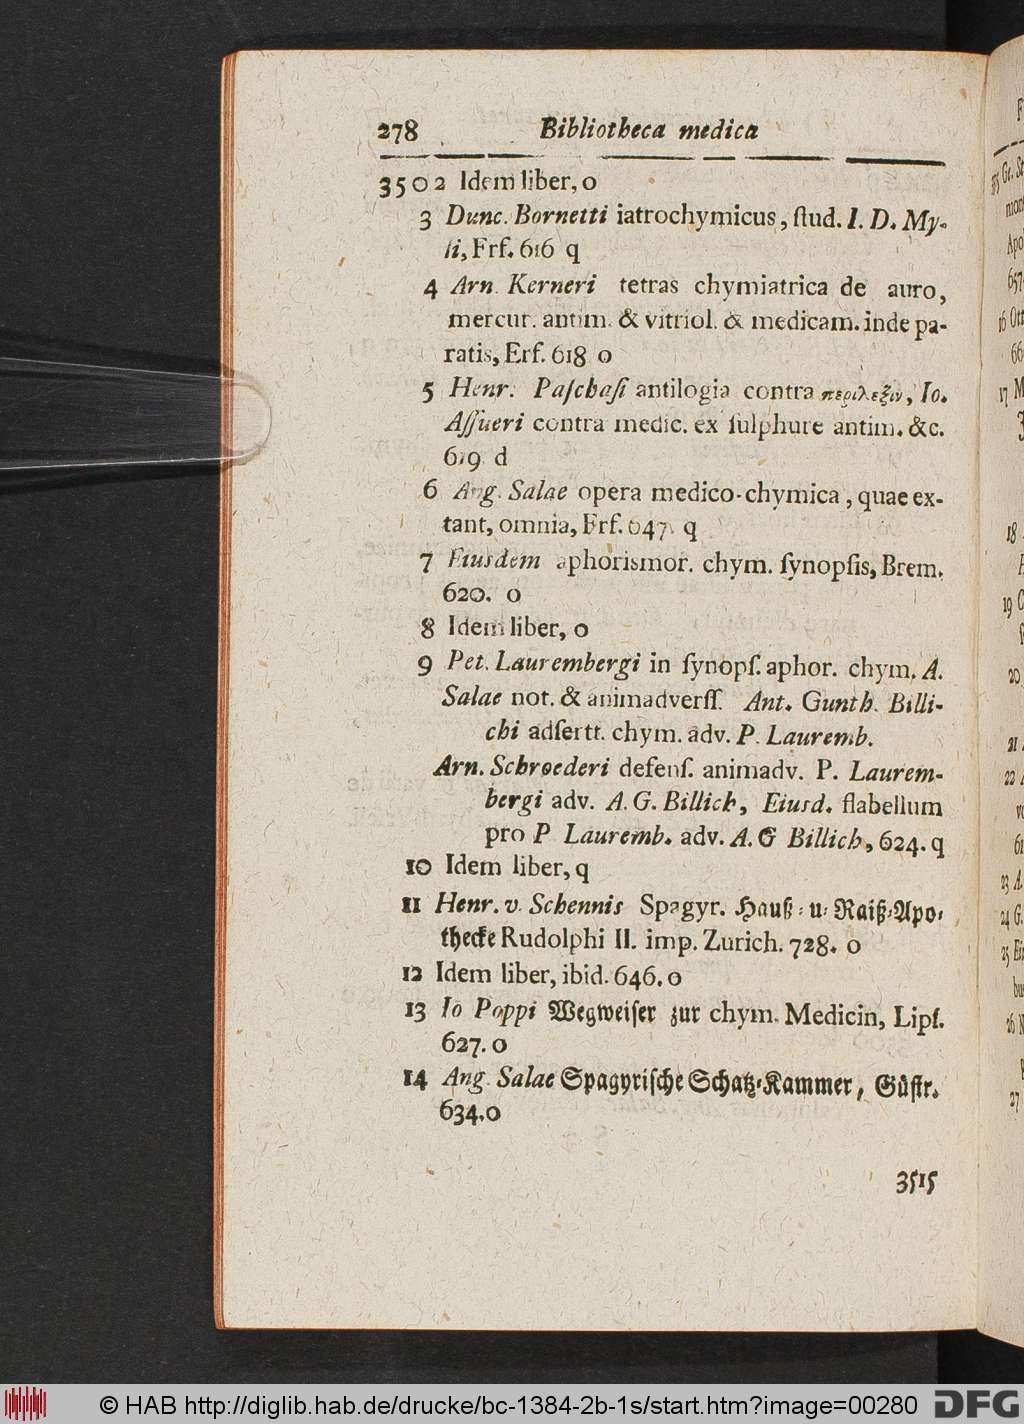 278 Bibliotheca medica
3502 Idem liber, o
3 Dunc. Bornetti iatrochymicus, ſtud. I. D. My-
lii, Frf. 616 q
4 Arn. Kerneri tetras chymiatrica de auro,
mercur. antim. & vitriol. & medicam. inde pa-
ratis, Erf. 618 o
5 Henr. Paſchaſi antilogia contra περιλεξιν, Io.
Aſſueri contra medic. ex ſulphure antim. &c.
619 d
6 Ang. Salae opera medico-chymica, quae ex-
tant, omnia, Frf. 647. q
7 Eiusdem aphorismor. chym. ſynopſis, Brem.
620. o
8 Idem liber, o
9 Pet. Laurembergi in ſynopſ. aphor. chym. A.
Salae not. & animadverſſ. Ant. Gunth. Billi-
chi adſertt. chym. adv. P. Lauremb.
Arn. Schroederi defenſ. animadv. P. Laurem-
bergi adv. A. G. Billich, Eiusd. flabellum
pro P Lauremb. adv. A. G Billich, 624. q
10 Idem liber, q
11 Henr. v. Schennis Spagyr. Hauß- u- Raiß-Apo-
thecke Rudolphi II. imp. Zurich. 728. o
12 Idem liber, ibid. 646. o
13 Io Poppi Wegweiſer zur chym. Medicin, Lipſ.
627. o
14 Ang. Salae Spagyriſche Schatz-Kammer, Güſtr.
634. o
3515
© HAB http://diglib.hab.de/drucke/bc-1384-2b-1s/start.htm?image=00280
DFG